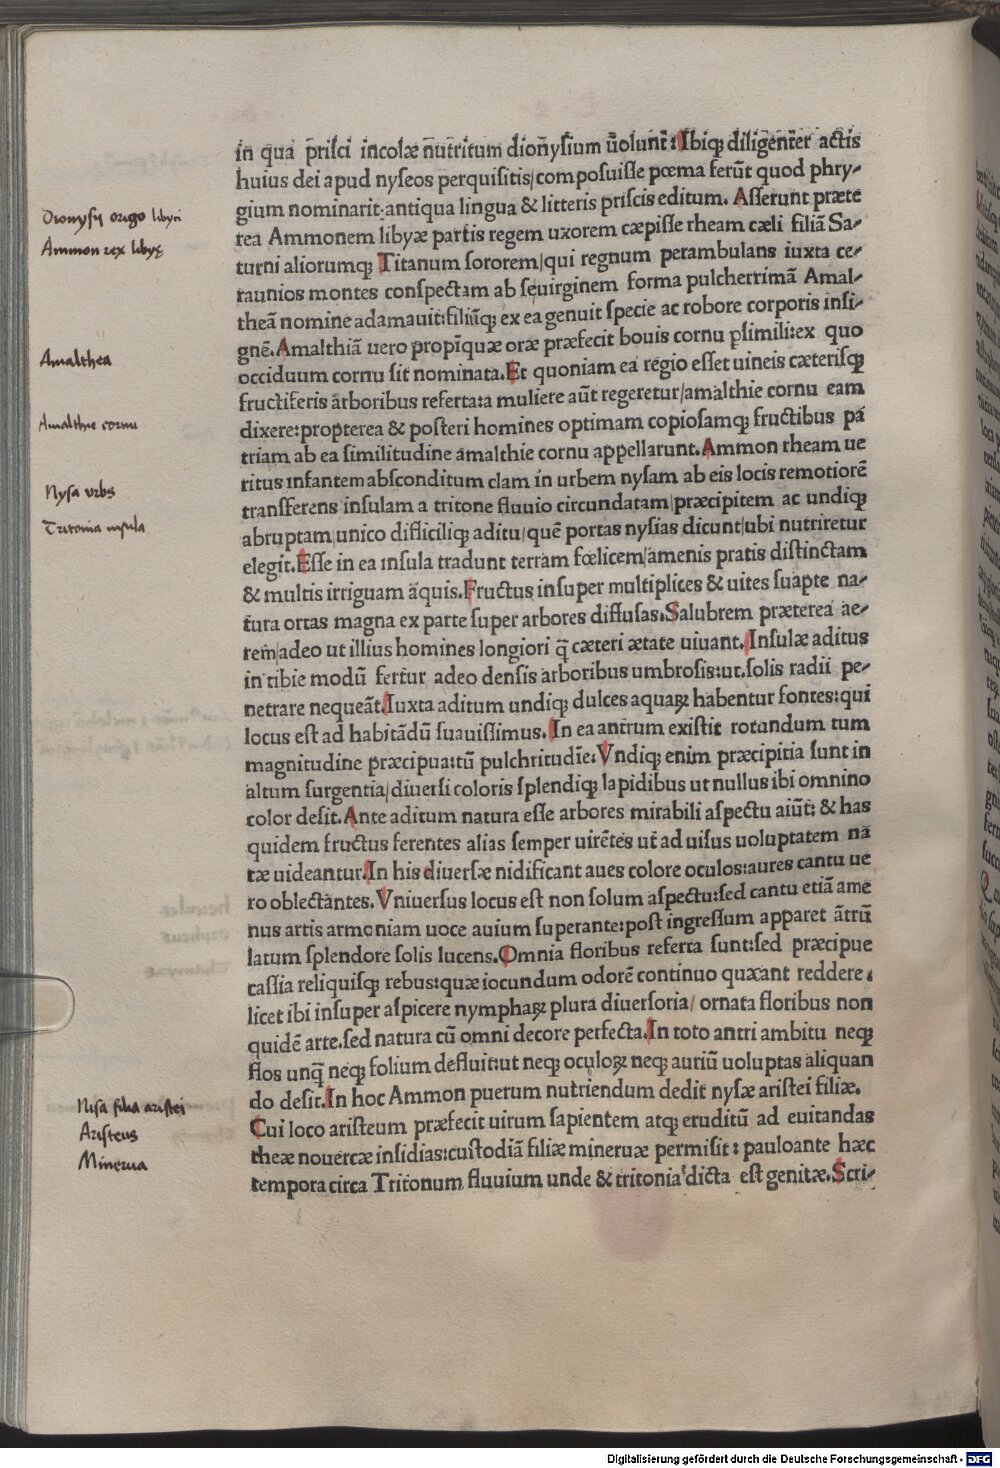 in qua prisci incolæ nutritum dionysium uolunt: Ibiq; diligenter actis
huius dei apud nyseos perquisitis/composuisse pœma ferūt quod phry-
gium nominarit:antiqua lingua & litteris priscis editum. Asserunt præte
rea Ammonem libyæ partis regem uxorem cæpisse rheam cæli filiā Sa-
turni aliorumq; Titanum sororem/qui regnum perambulans iuxta ce-
raunios montes conspectam ab se uirginem forma pulcherrimā Amal-
theā nomine adamauit:filiūq; ex ea genuit specie ac robore corporis insi-
gnē. Amalthiā uero propīquæ oræ præfecit bouis cornu psimili:ex quo
occiduum cornu sit nominata. Et quoniam ea regio esset uineis cæterisq;
fructiferis arboribus referta:a muliere aūt regeretur/amalthie cornu eam
dixere:propterea & posteri homines optimam copiosamq; fructibus pa
triam ab ea similitudine amalthie cornu appellarunt. Ammon rheam ue
ritus infantem absconditum clam in urbem nysam ab eis locis remotiorē
transferens insulam a tritone fluuio circundatam/præcipitem ac undiq;
abruptam/unico difficiliq; aditu/quē portas nysias dicunt/ubi nutriretur
elegit. Esse in ea insula tradunt terram fœlicem/amenis pratis distinctam
& multis irriguam aquis. Fructus insuper multiplices & uites suapte na-
tura ortas magna ex parte super arbores diffusas. Salubrem præterea ae-
rem/adeo ut illius homines longiori q̄ cæteri ætate uiuant. Insulæ aditus
in tibie modū fertur adeo densis arboribus umbrosis:ut solis radii pe-
netrare nequeāt. Iuxta aditum undiq; dulces aquaꝝ habentur fontes:qui
locus est ad habitādū suauissimus. In ea antrum existit rotundum tum
magnitudine præcipua:tū pulchritudīe: Vndiq; enim præcipitia sunt in
altum surgentia/diuersi coloris splendiq; lapidibus ut nullus ibi omnino
color desit. Ante aditum natura esse arbores mirabili aspectu aiūt: & has
quidem fructus ferentes alias semper uirētes ut ad uisus uoluptatem na
tæ uideantur. In his diuersæ nidificant aues colore oculos:aures cantu ue
ro oblectantes. Vniuersus locus est non solum aspectu:sed cantu etiā ame
nus artis armoniam uoce auium superante:post ingressum apparet ātrū
latum splendore solis lucens. Omnia floribus referta sunt:sed præcipue
cassia reliquisq; rebus:quæ iocundum odorē continuo quæant reddere.
licet ibi insuper aspicere nymphaꝝ plura diuersoria/ ornata floribus non
quidē arte.sed natura cū omni decore perfecta. In toto antri ambitu neq;
flos unq̄ neq; folium defluit:ut neq; oculoꝝ neq; auriū uoluptas aliquan
do desit. In hoc Ammon puerum nutriendum dedit nysæ aristei filiæ.
Cui loco aristeum præfecit uirum sapientem atq; eruditū ad euitandas
theæ nouercæ insidias:custodiā filiæ mineruæ permisit: pauloante hæc
tempora circa Tritonum fluuium unde & tritonia dicta est genitæ. Scri-
Dionysij origo libyci
Ammon rex libyę
Amalthea
Amalthie cornu
Nysa vrbs
Tritonia insula
Nisa filia aristei
Aristeus
Minerua
Digitalisierung gefördert durch die Deutsche Forschungsgemeinschaft - DFG